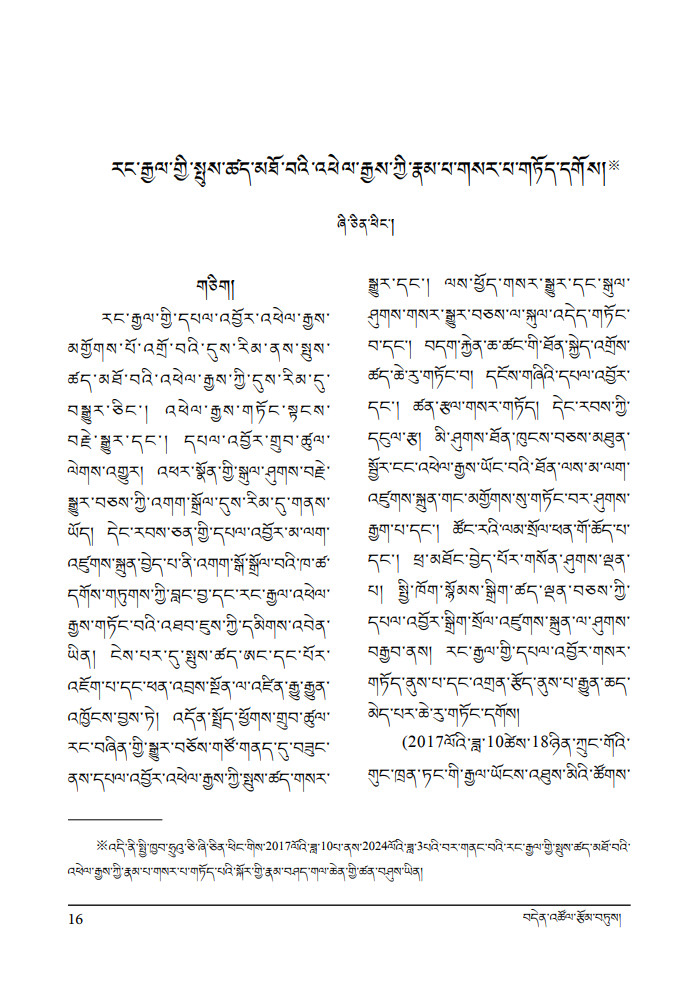 རང་རྒྱལ་གྱི་སྤུས་ཚད་མཐོ་བའི་འཕེལ་རྒྱས་ཀྱི་རྣམ་པ་གསར་པ་གཏོད་དགོས།※
ཞི་ཅིན་ཕིང་།
གཅིག
རང་རྒྱལ་གྱི་དཔལ་འབྱོར་འཕེལ་རྒྱས་
མགྱོགས་པོ་འགྲོ་བའི་དུས་རིམ་ནས་སྤུས་
ཚད་མཐོ་བའི་འཕེལ་རྒྱས་ཀྱི་དུས་རིམ་དུ་
བསྒྱུར་ཅིང་། འཕེལ་རྒྱས་གཏོང་སྟངས་
བརྗེ་སྒྱུར་དང་། དཔལ་འབྱོར་གྲུབ་ཚུལ་
ལེགས་འགྱུར། འཕར་སྣོན་གྱི་སྒུལ་ཤུགས་བརྗེ་
སྒྱུར་བཅས་ཀྱི་འགག་སྒྲོལ་དུས་རིམ་དུ་གནས་
ཡོད། དེང་རབས་ཅན་གྱི་དཔལ་འབྱོར་མ་ལག་
འཛུགས་སྐྲུན་བྱེད་པ་ནི་འགག་སྒོ་སྒྲོལ་བའི་ཁ་ཚ་
དགོས་གཏུགས་ཀྱི་བླང་བྱ་དང་རང་རྒྱལ་འཕེལ་
རྒྱས་གཏོང་བའི་འཐབ་ཇུས་ཀྱི་དམིགས་འབེན་
ཡིན། ངེས་པར་དུ་སྤུས་ཚད་ཨང་དང་པོར་
འཇོག་པ་དང་ཕན་འབྲས་སྔོན་ལ་འཛིན་རྒྱུ་རྒྱུན་
འཁྱོངས་བྱས་ཏེ། འདོན་སྤྲོད་ཕྱོགས་གྲུབ་ཚུལ་
རང་བཞིན་གྱི་སྒྱུར་བཅོས་གཙོ་གནད་དུ་བཟུང་
ནས་དཔལ་འབྱོར་འཕེལ་རྒྱས་ཀྱི་སྤུས་ཚད་གསར་
སྒྱུར་དང་། ལས་ཕྱོད་གསར་སྒྱུར་དང་སྒུལ་
ཤུགས་གསར་སྒྱུར་བཅས་ལ་སྐུལ་འདེད་གཏོང་
བ་དང་། བདག་རྐྱེན་ཆ་ཚང་གི་ཐོན་སྐྱེད་འགྲོས་
ཚད་ཆེ་རུ་གཏོང་བ། དངོས་གཞིའི་དཔལ་འབྱོར་
དང་། ཚན་རྩལ་གསར་གཏོད། དེང་རབས་ཀྱི་
དངུལ་རྩ། མི་ཤུགས་ཐོན་ཁུངས་བཅས་མཐུན་
སྦྱོར་ངང་འཕེལ་རྒྱས་ཡོང་བའི་ཐོན་ལས་མ་ལག་
འཛུགས་སྐྲུན་གང་མགྱོགས་སུ་གཏོང་བར་ཤུགས་
རྒྱག་པ་དང་། ཚོང་རའི་ལམ་སྲོལ་ཕན་གོ་ཆོད་པ་
དང་། ཕྲ་མཐོང་བྱེད་པོར་གསོན་ཤུགས་ལྡན་
པ། སྤྱི་ཁོག་སྙོམས་སྒྲིག་ཚད་ལྡན་བཅས་ཀྱི་
དཔལ་འབྱོར་སྒྲིག་སྲོལ་འཛུགས་སྐྲུན་ལ་ཤུགས་
བརྒྱབ་ནས། རང་རྒྱལ་གྱི་དཔལ་འབྱོར་གསར་
གཏོད་ནུས་པ་དང་འགྲན་རྩོད་ནུས་པ་རྒྱུན་ཆད་
མེད་པར་ཆེ་རུ་གཏོང་དགོས།
(2017ལོའི་ཟླ་10ཚེས་18ཉིན་ཀྲུང་གོའི་
གུང་ཁྲན་ཏང་གི་རྒྱལ་ཡོངས་འཐུས་མིའི་ཚོགས་
※འདི་ནི་སྤྱི་ཁྱབ་ཧྲུའུ་ཅི་ཞི་ཅིན་ཕིང་གིས་2017ལོའི་ཟླ་10པ་ནས་2024ལོའི་ཟླ་3པའི་བར་གནང་བའི་རང་རྒྱལ་གྱི་སྤུས་ཚད་མཐོ་བའི་
འཕེལ་རྒྱས་ཀྱི་རྣམ་པ་གསར་པ་གཏོད་པའི་སྐོར་གྱི་རྣམ་བཤད་གལ་ཆེན་གྱི་ཚན་བཤུས་ཡིན།
16 བདེན་འཚོལ་རྩོམ་བཏུས།